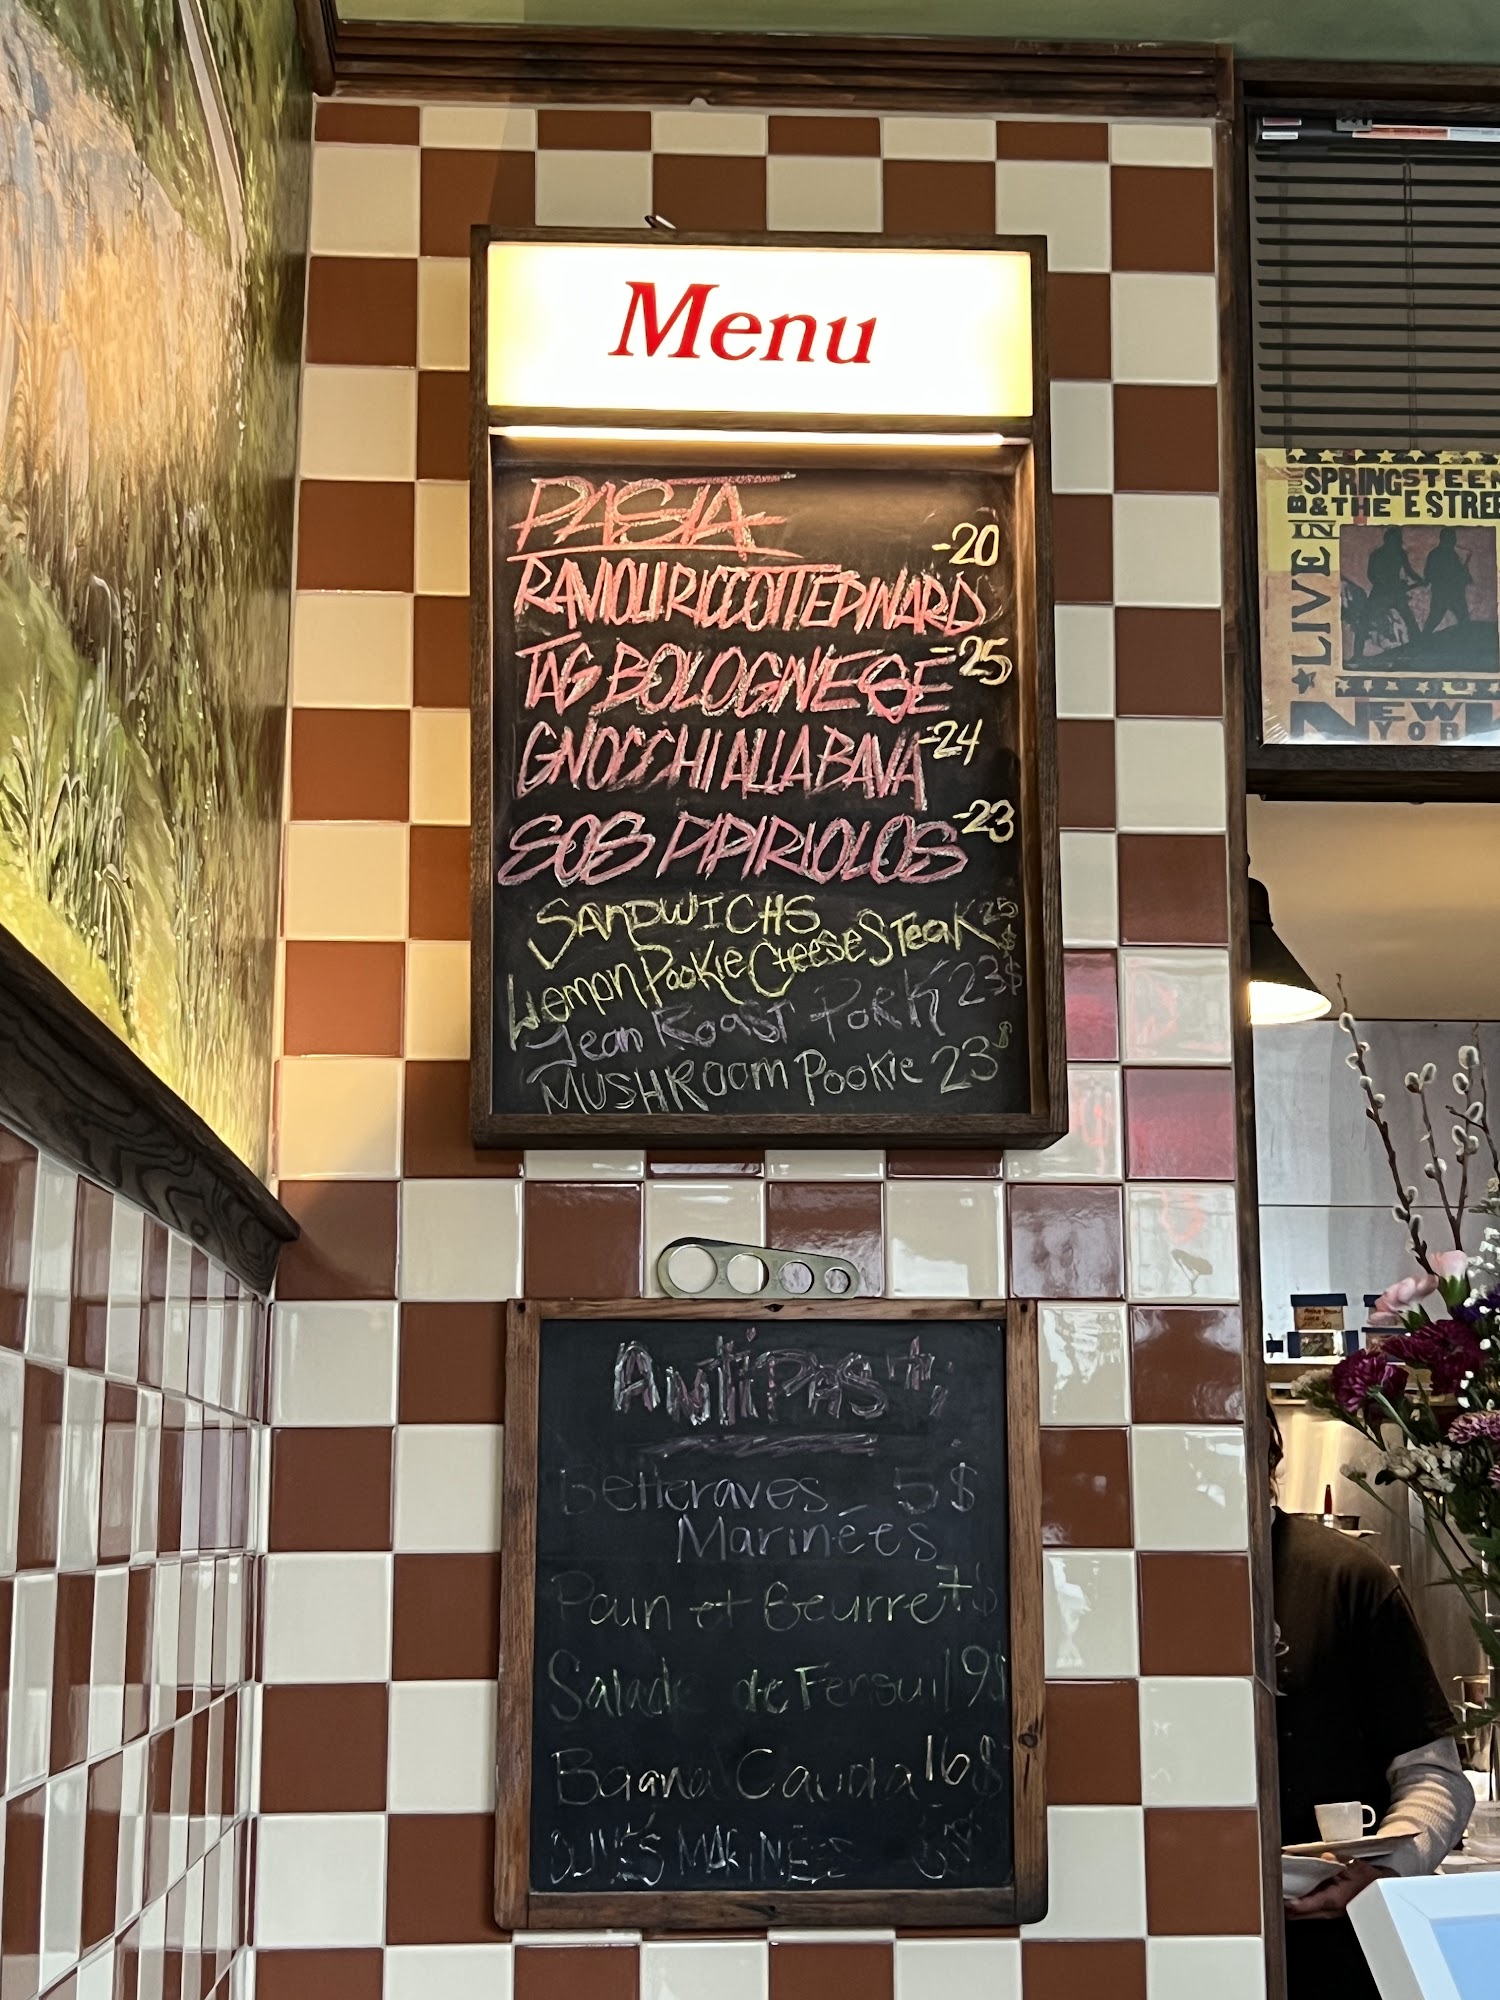 Menu
PASTA
RAVIOLI RICCOTTEPINARD -20
TAG BOLOGNESE -25
GNOCCHI ALLA BAVA -24
SOS PIPIRIOLOS -23
SANDWICHS
Lemon Pookie Cheese Steak 25$
Jean Roast Pork 23$
MUSHROOM Pookie 23$
Antipasti
Betteraves 5$
Marinées
Pain et Beurre 7$
Salade de Fenouil 19$
Bagna Cauda 16$
MARINÉES
BRUCE
SPRINGSTEEN
& THE E STREE
LIVE IN
NEW
YOR